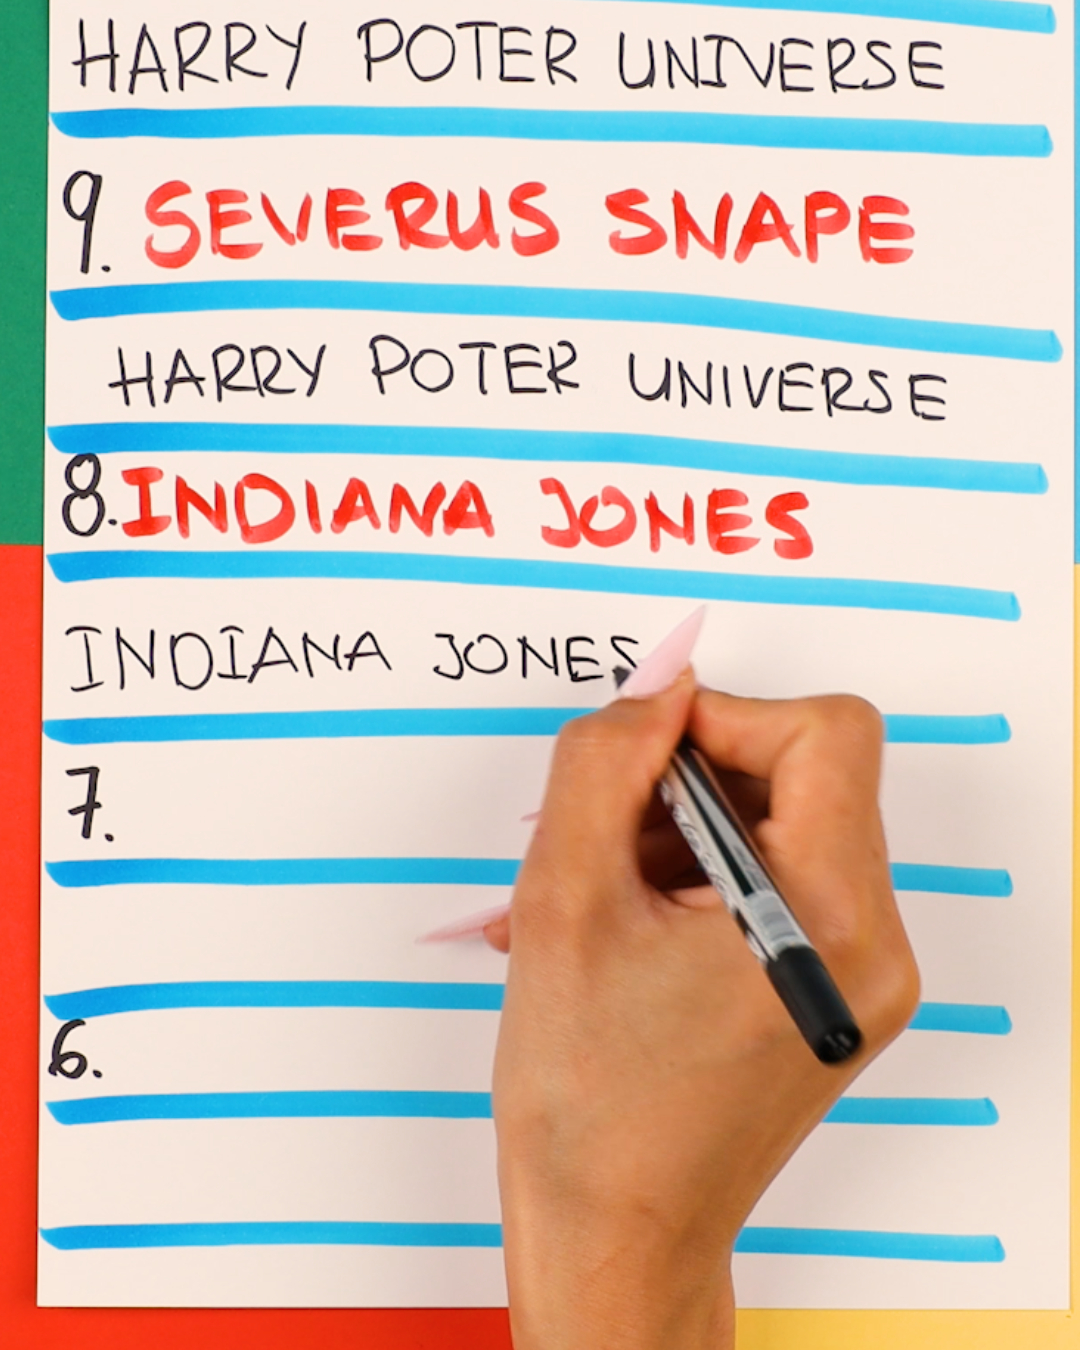 HARRY POTER UNIVERSE
9. SEVERUS SNAPE
HARRY POTER UNIVERSE
8. INDIANA JONES
INDIANA JONES
7.
6.